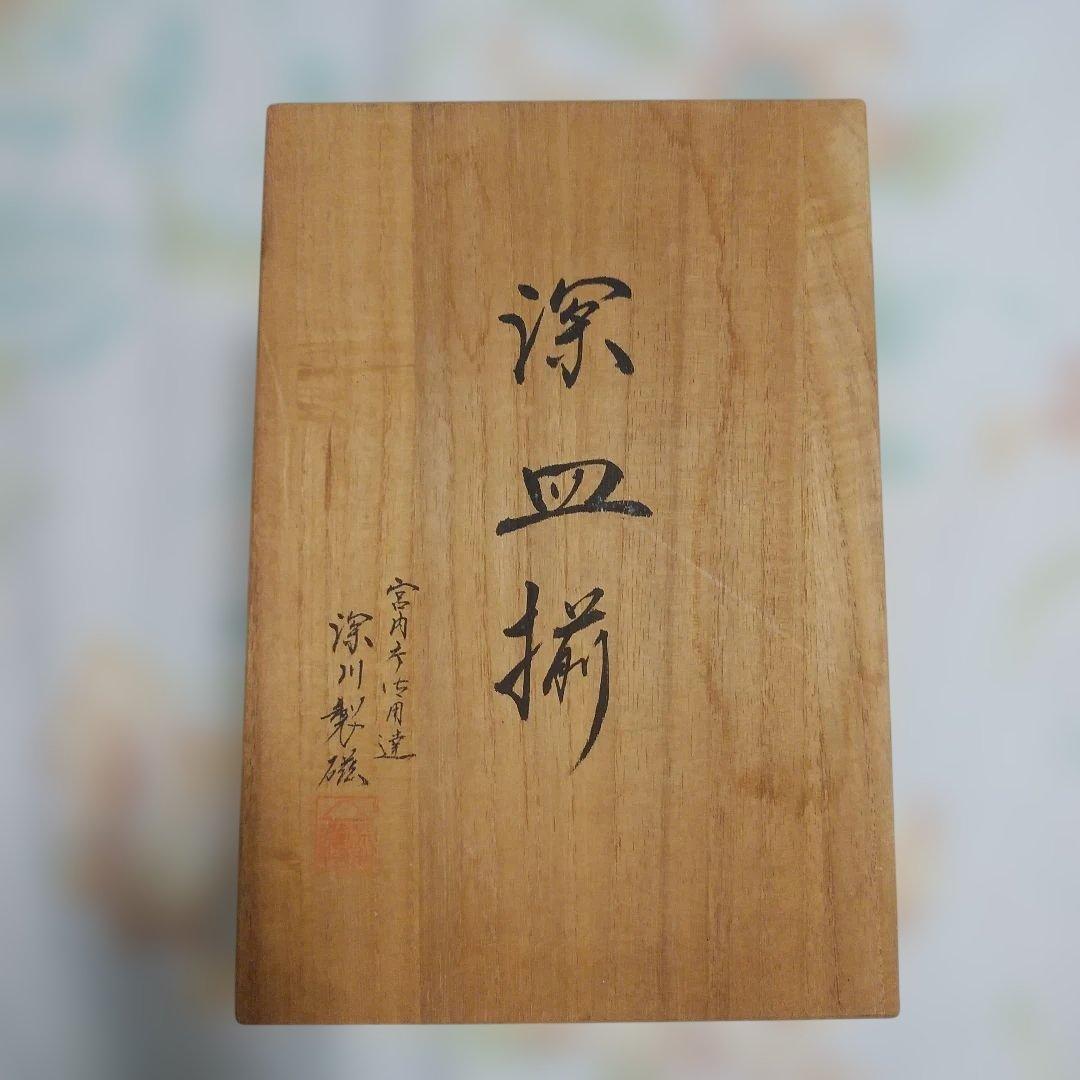 深皿揃
宮内庁御用達
深川製磁